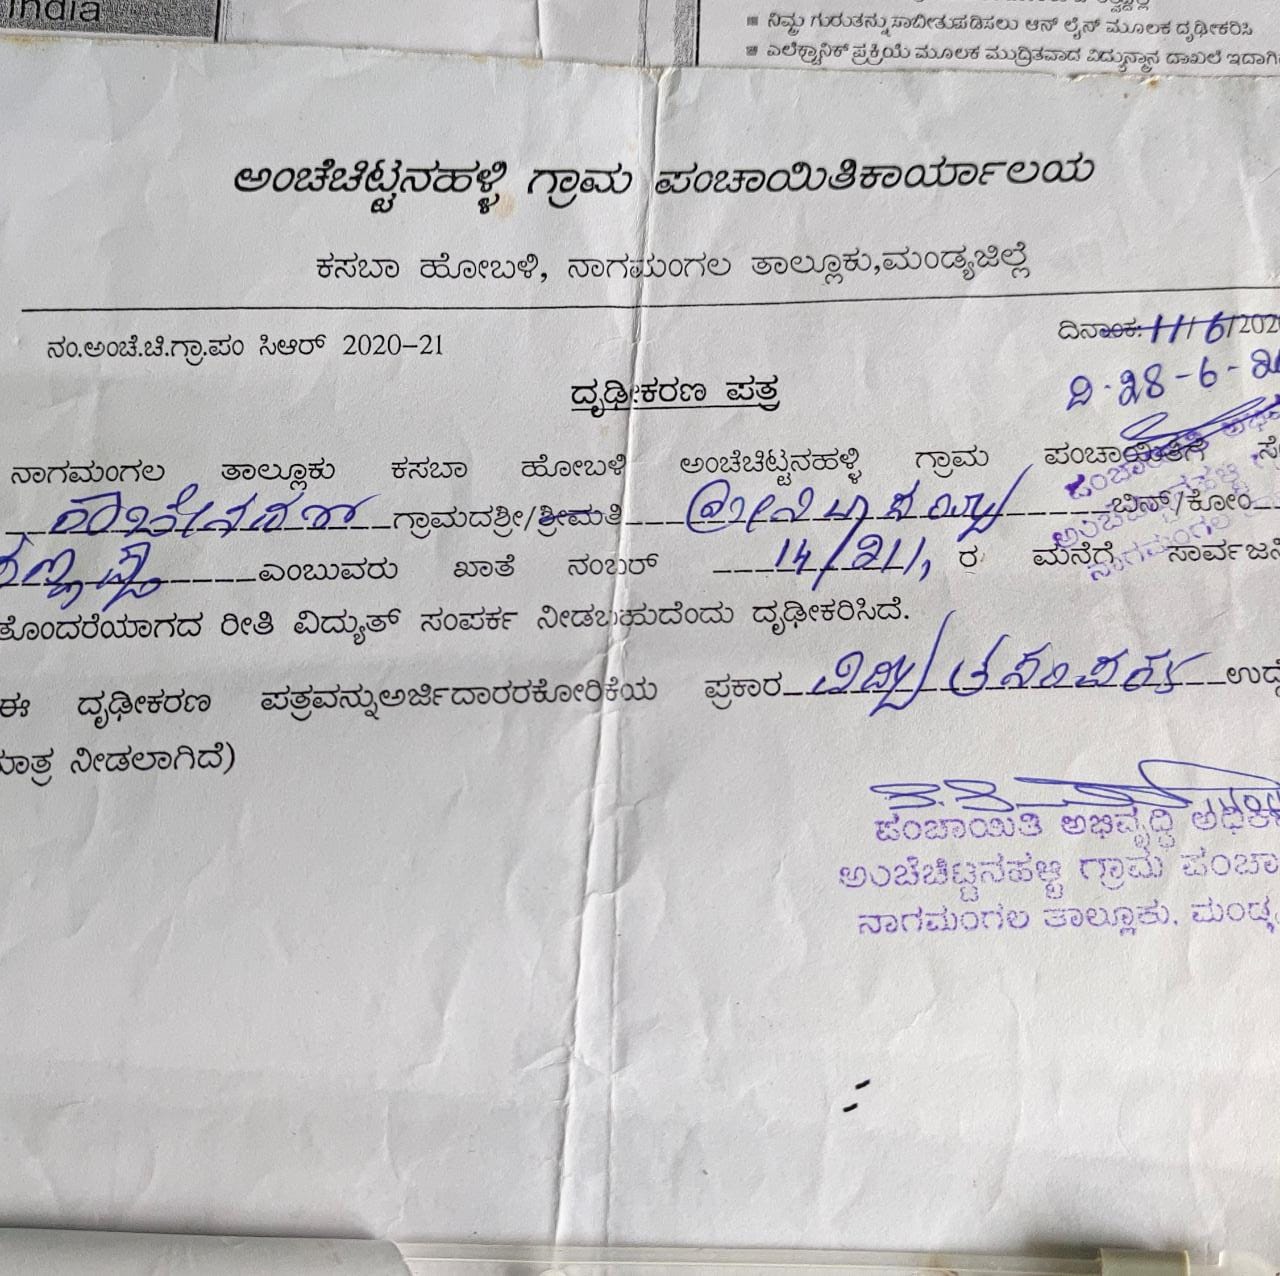 India
ನಿಮ್ಮ ಗುರುತನ್ನು ಸಾಬೀತುಪಡಿಸಲು ಆನ್ ಲೈನ್ ಮೂಲಕ ದೃಢೀಕರಿಸಿ
ಎಲೆಕ್ಟ್ರಾನಿಕ್ ಪ್ರಕ್ರಿಯೆ ಮೂಲಕ ಮುದ್ರಿತವಾದ ವಿದ್ಯುನ್ಮಾನ ದಾಖಲೆ ಇದಾಗಿ
ಅಂಚೆಚಿಟ್ಟನಹಳ್ಳಿ ಗ್ರಾಮ ಪಂಚಾಯಿತಿಕಾರ್ಯಾಲಯ
ಕಸಬಾ ಹೋಬಳಿ, ನಾಗಮಂಗಲ ತಾಲ್ಲೂಕು,ಮಂಡ್ಯಜಿಲ್ಲೆ
ನಂ.ಅಂಚೆ.ಚಿ.ಗ್ರಾ.ಪಂ ಸಿಆರ್ 2020-21
ದಿನಾಂಕ: 11/6/202
ದಿ. 28-6-
ದೃಢೀಕರಣ ಪತ್ರ
ನಾಗಮಂಗಲ ತಾಲ್ಲೂಕು ಕಸಬಾ ಹೋಬಳಿ ಅಂಚೆಚಿಟ್ಟನಹಳ್ಳಿ ಗ್ರಾಮ ಪಂಚಾಯಿತಿಗೆ ಸೇ
ಗ್ರಾಮದಶ್ರೀ/ಶ್ರೀಮತಿ ಬಿನ್/ಕೋಂ
ಎಂಬುವರು ಖಾತೆ ನಂಬರ್ 14/211, ರ ಮನೆಗೆ ಸಾರ್ವಜನಿ
ತೊಂದರೆಯಾಗದ ರೀತಿ ವಿದ್ಯುತ್ ಸಂಪರ್ಕ ನೀಡಬಹುದೆಂದು ದೃಢೀಕರಿಸಿದೆ.
ಈ ದೃಢೀಕರಣ ಪತ್ರವನ್ನುಅರ್ಜಿದಾರರಕೋರಿಕೆಯ ಪ್ರಕಾರ ವಿದ್ಯುತ್ ಸಂಪರ್ಕ ಉದ್ದೇ
ಮಾತ್ರ ನೀಡಲಾಗಿದೆ)
ಪಂಚಾಯಿತಿ ಅಭಿವೃದ್ಧಿ ಅಧಿಕಾ
ಅಂಚೆಚಿಟ್ಟನಹಳ್ಳಿ ಗ್ರಾಮ ಪಂಚಾ
ನಾಗಮಂಗಲ ತಾಲ್ಲೂಕು. ಮಂಡ್ಯ